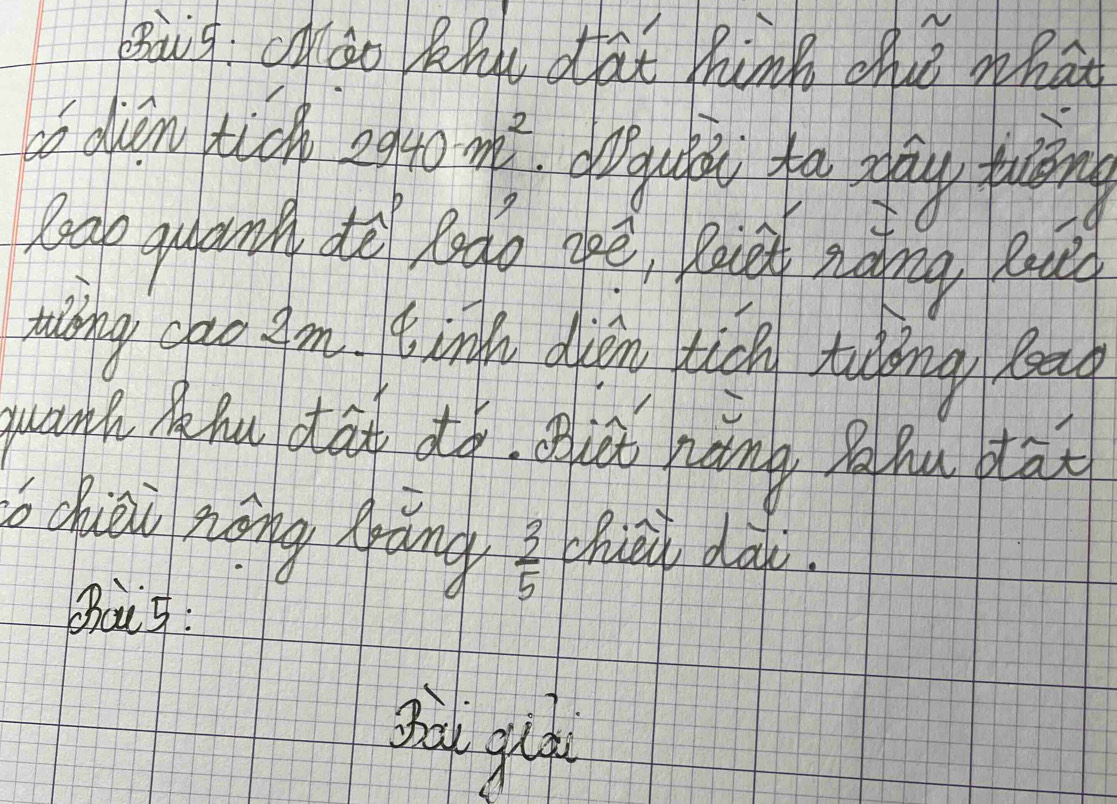 Bài 5: Một khu đất hình chữ nhật
có diện tích 2940 m². Người ta xây tường
bao quanh để bảo vệ, biết rằng bức
tường cao 2m. Tính diện tích tường bao
quanh khu đất đó. Biết rằng khu đất
có chiều rộng bằng 3/5 chiều dài.
Bài 5:
Bài giải